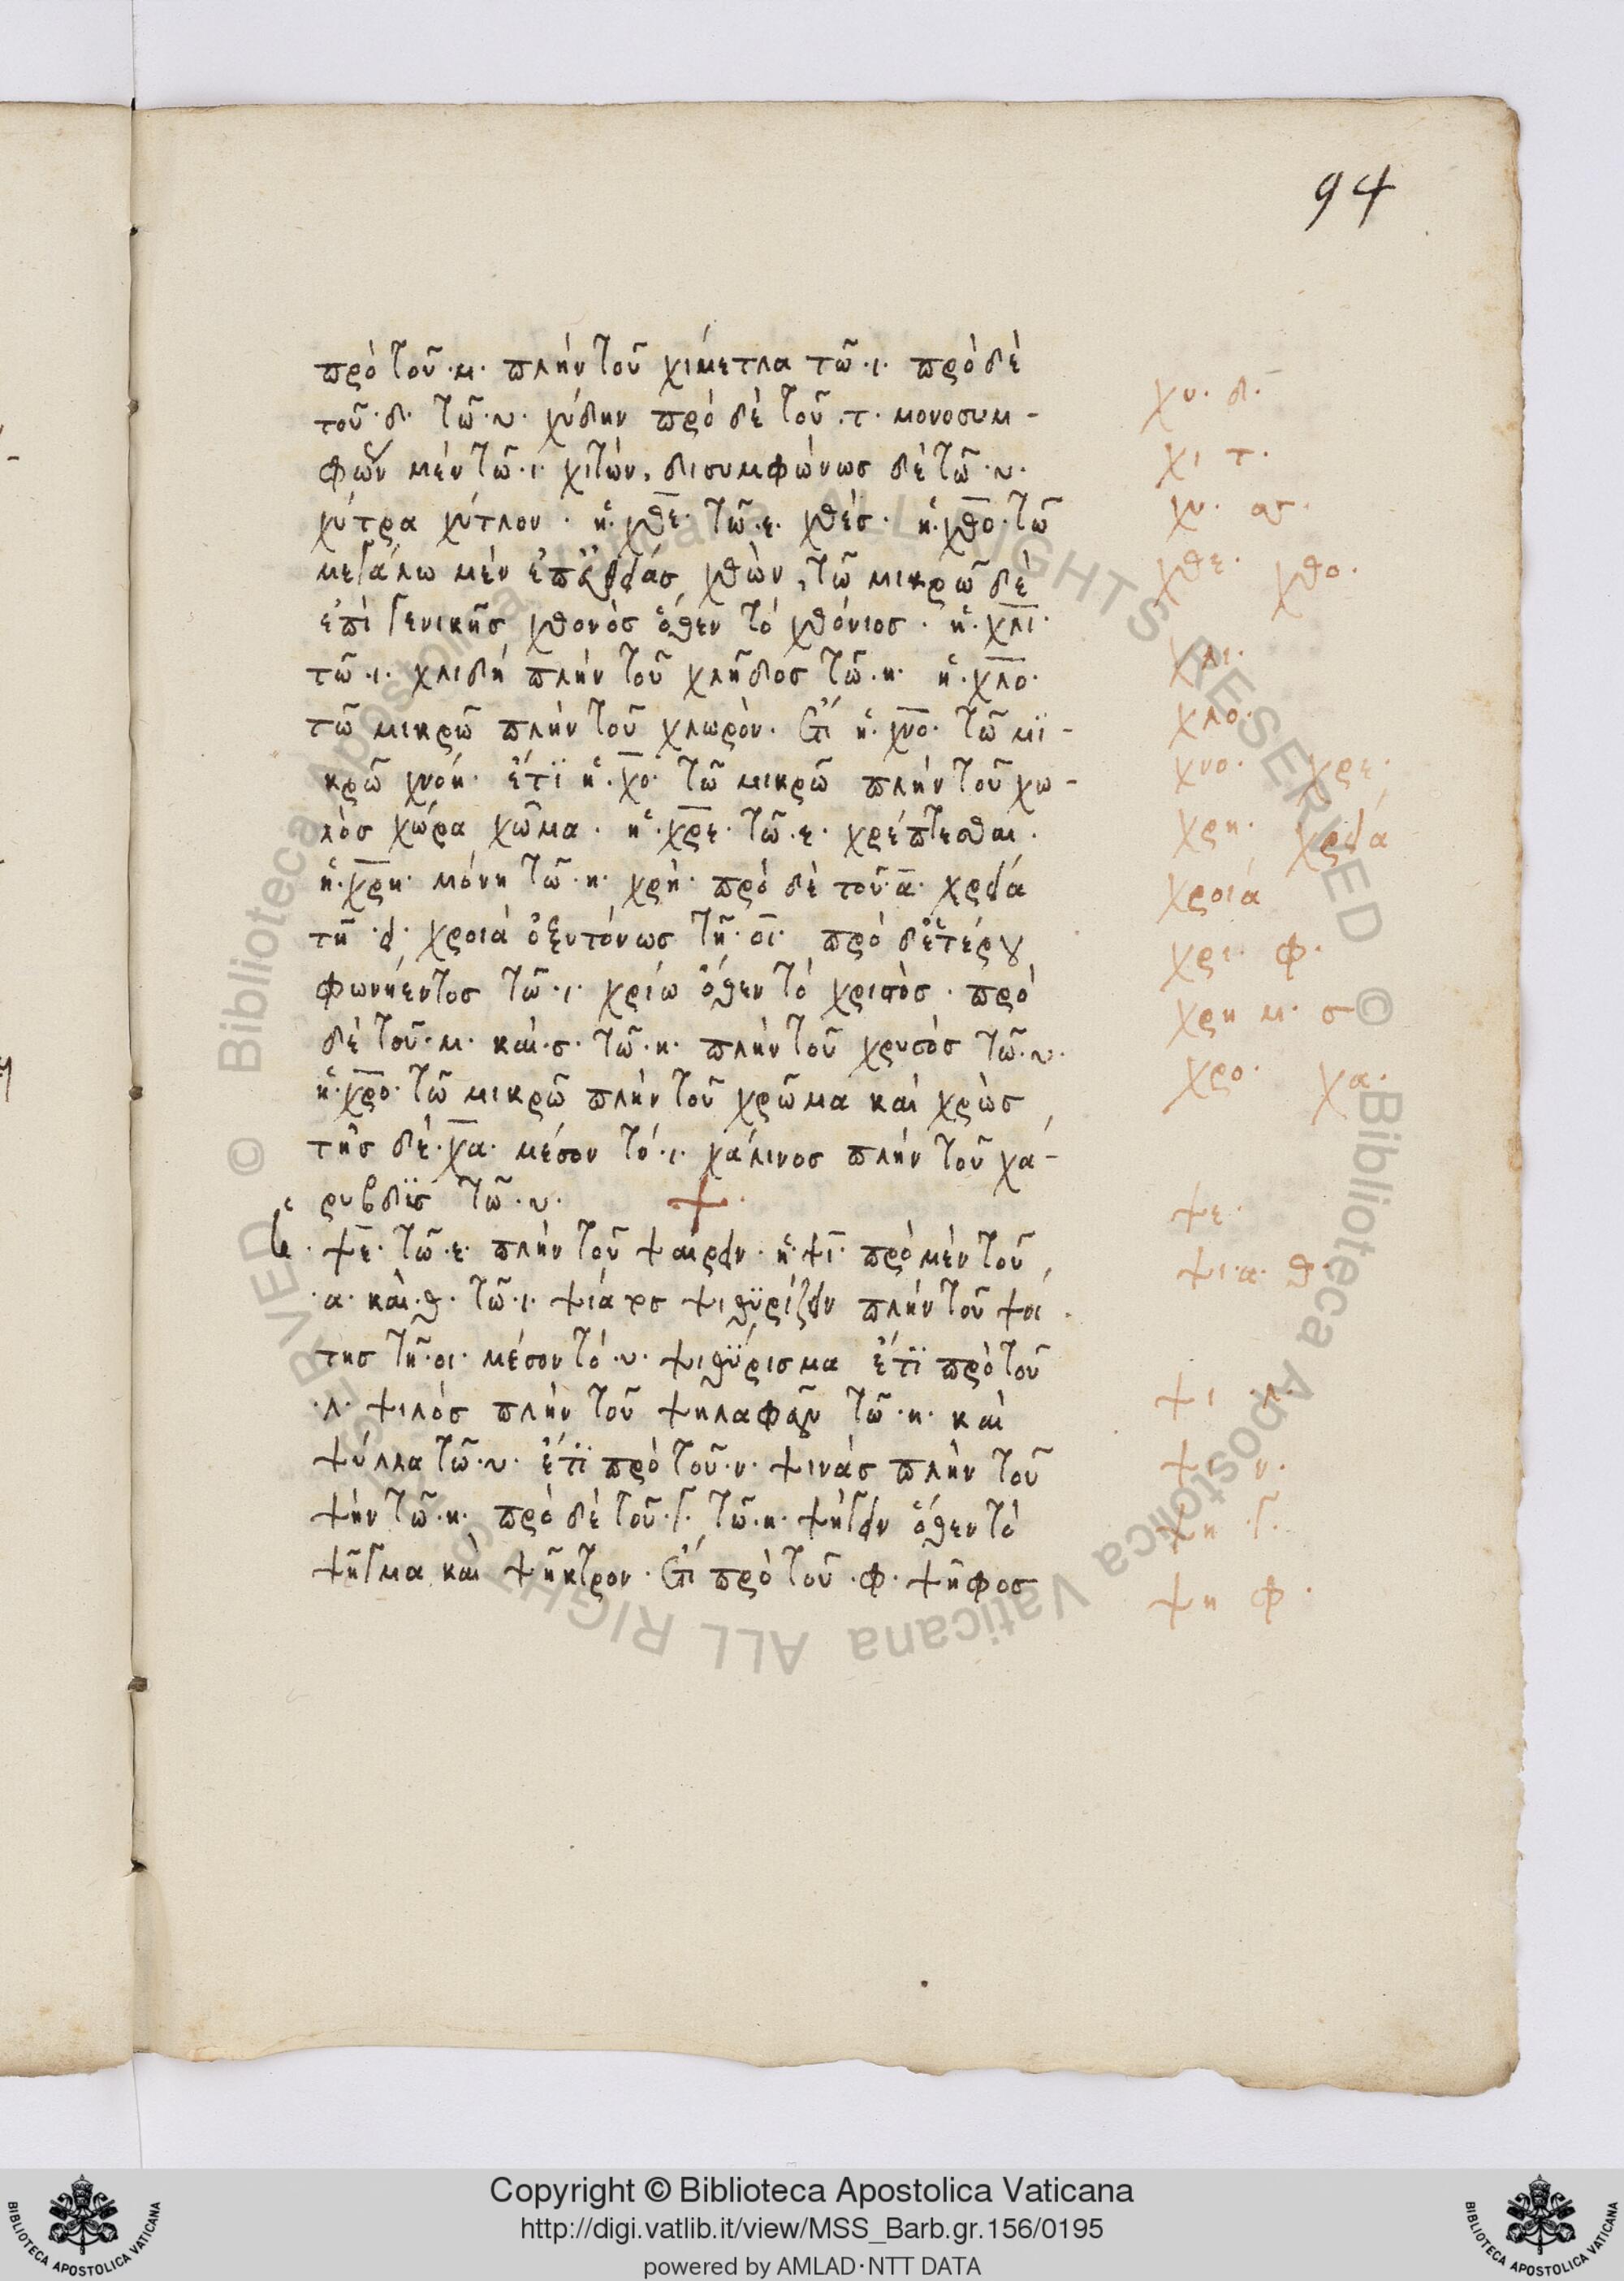 94
πρὸ τοῦ ·μ· πλὴν τοῦ χίμετλα τῶ ·ι· πρὸ δὲ
τοῦ ·δ· τῶ ·υ· χύδην πρὸ δὲ τοῦ ·τ· μονοσυμ-
φων μὲν τῶ ·ι· χιτών, δισυμφώνως δὲ τῶ ·υ·
χύτρα χύτλον · ἡ ·χθε· τῶ ·ε· χθές · ἡ ·χθο· τῶ
μεγάλω μὲν χθών, τῶ μικρῶ δὲ
ἐπὶ γενικῆς χθονὸς ὅθεν τὸ χθόνιος · ἡ ·χλι·
τῶ ·ι· χλιδή πλὴν τοῦ χλῆδος τῶ ·η· ἡ ·χλο·
τῶ μικρῶ πλὴν τοῦ χλωρὸν · ἔτι ἡ ·χνο· τῶ μϊ-
κρῶ χνοή · ἔτϊ ἡ ·χο· τῶ μικρῶ πλὴν τοῦ χω-
λὸς χώρα χῶμα · ἡ ·χρε· τῶ ·ε· χρέπτεσθαι ·
ἡ ·χρη· μόνη τῶ ·η· χρή · πρὸ δὲ τοῦ ·α· χρεία
τῆ ·ει· χροιά ὀξυτόνως τῆ ·οι· πρὸ δ' ἑτέρου
φωνήεντος τῶ ·ι· χρίω ὅθεν τὸ χριστὸς · πρὸ
δὲ τοῦ ·μ· καὶ ·σ· τῶ ·η· πλὴν τοῦ χρυσὸς τῶ ·υ·
ἡ ·χρο· τῶ μικρῶ πλὴν τοῦ χρῶμα καὶ χρὼς
τῆς δὲ ·χα· μέσον τὸ ·ι· χάλινος πλὴν τοῦ χά-
ρυβδϊς τῶ ·υ·
·ψε· τῶ ·ε· πλὴν τοῦ ψαίρειν · ἡ ·ψι· πρὸ μὲν τοῦ
·α· καὶ ·θ· τῶ ·ι· ψίαθος ψιθϋρίζειν πλὴν τοῦ ψοί
της τῆ ·οι· μέσον τὸ ·υ· ψιθϋρισμα ἔτϊ πρὸ τοῦ
·λ· ψιλός πλὴν τοῦ ψηλαφᾶν τῶ ·η· καὶ
ψύλλα τῶ ·υ· ἔτϊ πρὸ τοῦ ·ν· ψινάς πλὴν τοῦ
ψήν τῶ ·η· πρὸ δὲ τοῦ ·γ· τῶ ·η· ψήγειν ὅθεν τὸ
ψῆγμα καὶ ψῆκτρον · ἔτι πρὸ τοῦ ·φ· ψῆφος
χυ· δ·
χι τ·
χυ·
χθε· χθο·
χλι·
χλο·
χνο· χρε·
χρη· χρεία
χροιά
χρι· φ·
χρη μ· σ
χρο· χα·
ψε·
ψι· α· θ·
ψι λ·
ψι ν·
ψη γ·
ψη φ·
Copyright © Biblioteca Apostolica Vaticana
http://digi.vatlib.it/view/MSS_Barb.gr.156/0195
powered by AMLAD·NTT DATA
BIBLIOTECA APOSTOLICA VATICANA
BIBLIOTECA APOSTOLICA VATICANA
© Biblioteca Apostolica Vaticana ALL RIGHTS RESERVED
© Biblioteca Apostolica Vaticana ALL RIGHTS RESERVED